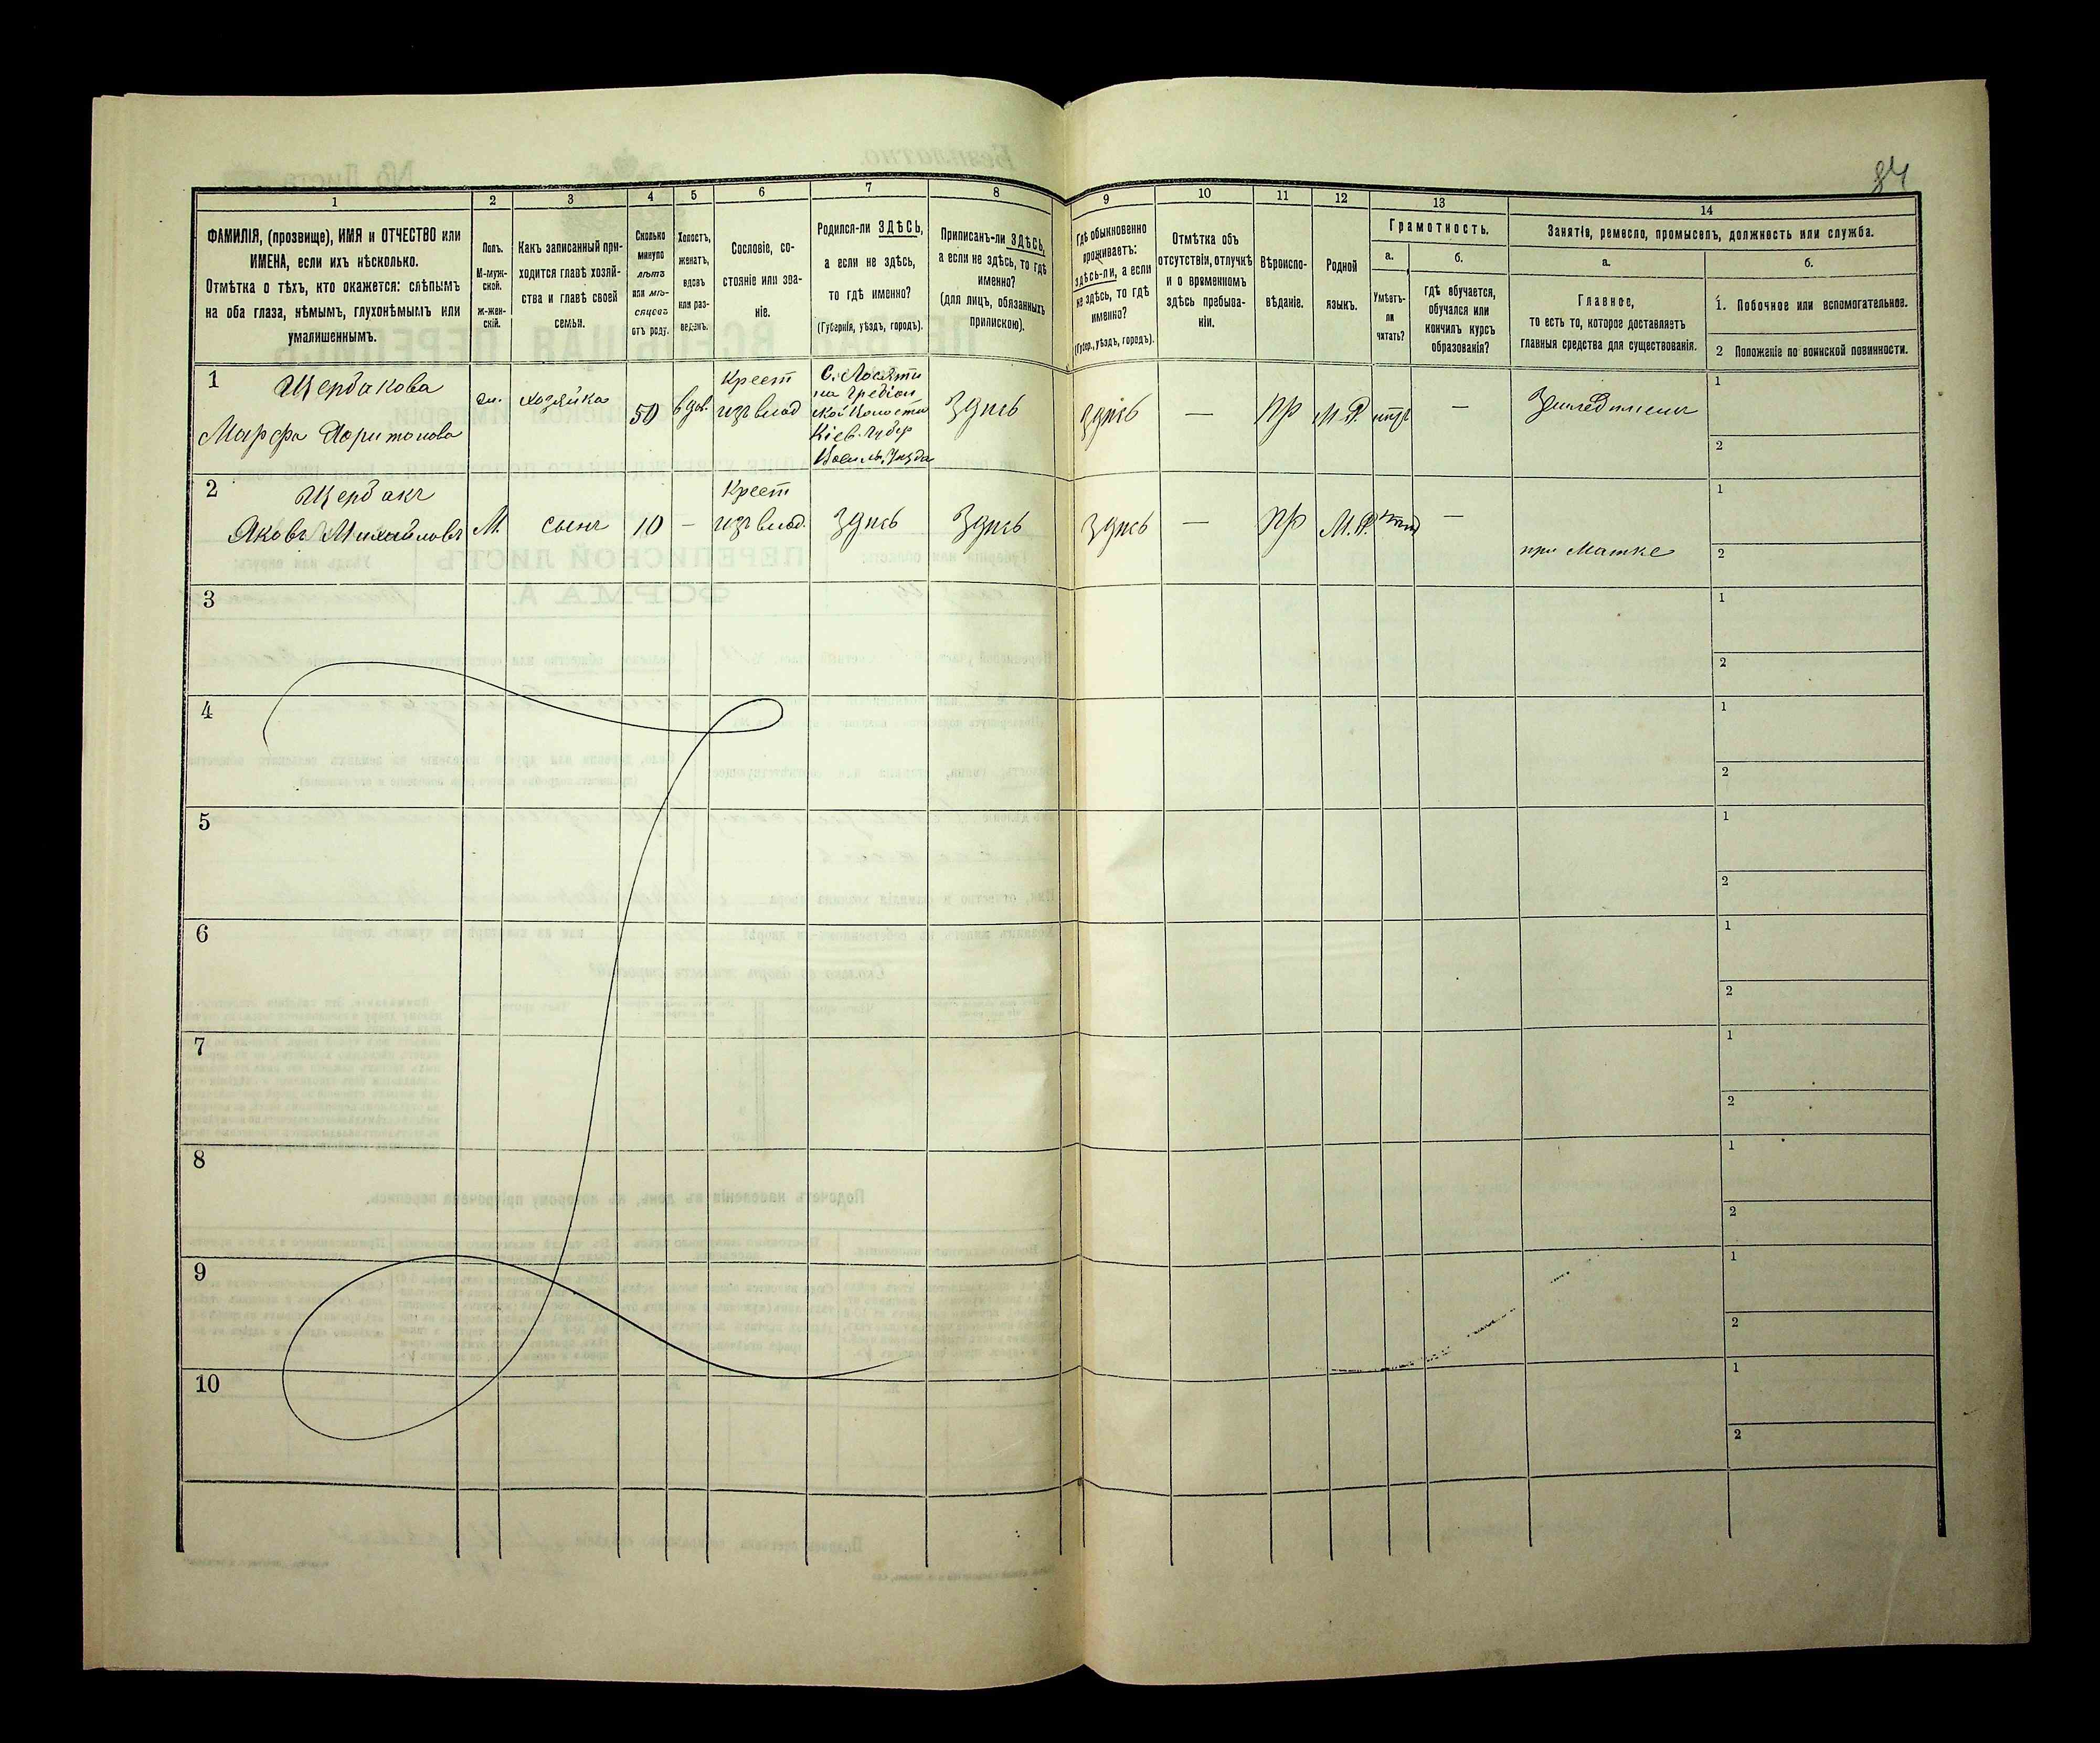 84
1 2 3 4 5 6 7 8 9 10 11 12 13 14
ФАМИЛІЯ, (прозвище), ИМЯ и ОТЧЕСТВО или
ИМЕНА, если ихъ нѣсколько.
Отмѣтка о тѣхъ, кто окажется: слѣпымъ
на оба глаза, нѣмымъ, глухонѣмымъ или
умалишеннымъ.
Полъ.
М-муж-
ской.
ж-жен-
скій.
Какъ записанный при-
ходится главѣ хозяй-
ства и главѣ своей
семьи.
Сколько
минуло
лѣтъ
или мѣ-
сяцевъ
отъ роду.
Холостъ,
женатъ,
вдовъ
или раз-
веденъ.
Сословіе, со-
стояніе или зва-
ніе.
Родился-ли ЗДѢСЬ,
а если не здѣсь,
то гдѣ именно?
(Губернія, уѣздъ, городъ).
Приписанъ-ли ЗДѢСЬ,
а если не здѣсь, то гдѣ
именно?
(для лицъ, обязанныхъ
припискою).
Гдѣ обыкновенно
проживаетъ:
здѣсь-ли, а если
не здѣсь, то гдѣ
именно?
(Губер., уѣздъ, городъ).
Отмѣтка объ
отсутствіи, отлучкѣ
и о временномъ
здѣсь пребыва-
ніи.
Вѣроиспо-
вѣданіе.
Родной
языкъ.
Грамотность.
а.
Умѣетъ-
ли
читать?
б.
гдѣ обучается,
обучался или
кончилъ курсъ
образованія?
Занятіе, ремесло, промыселъ, должность или служба.
а.
Главное,
то есть то, которое доставляетъ
главныя средства для существованія.
б.
1. Побочное или вспомогательное.
2 Положеніе по воинской повинности.
1 Щербакова
Марфа Харитонова
жи.
хозяйка
50
вдов.
Крест
изъ влад
Кіев. Губер
здѣсь
здѣсь
—
пр
М.Р.
—
1
2
2 Щербакъ
Яковъ Михайловъ
М.
сынъ
10
—
Крест
изъ влад.
здѣсь
здѣсь
здѣсь
—
пр
М.Р.
—
при Матке
1
2
3
1
2
4
1
2
5
1
2
6
1
2
7
1
2
8
1
2
9
1
2
10
1
2